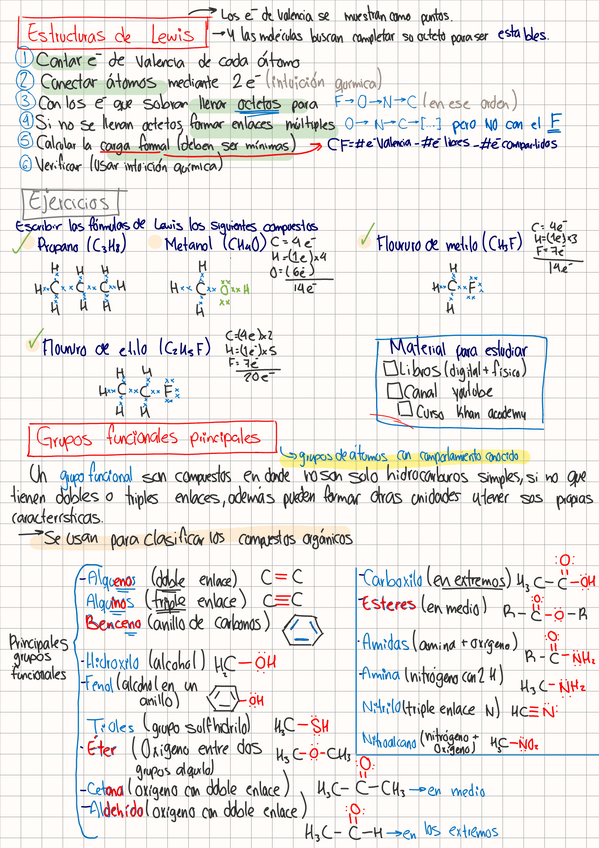 Estructuras de Lewis
→ Los e⁻ de valencia se muestran como puntos.
→ Y las moléculas buscan completar su octeto para ser estables.
① Contar e⁻ de valencia de cada átomo
② Conectar átomos mediante 2e⁻ (intuición química)
③ Con los e⁻ que sobran llenar octetos para F→O→N→C (en ese orden)
④ Si no se llenan octetos, formar enlaces múltiples O→N→C→[...] pero NO con el F
⑤ Calcular la carga formal (deben ser mínimas) → CF=#e⁻ Valencia - #e⁻ libres - #e⁻ compartidos
⑥ Verificar (usar intuición química)
Ejercicios
Escribir las fórmulas de Lewis los siguientes compuestos
Propano (C₃H₈)
H H H
H C C C H
H H H
Metanol (CH₄O)
C=4e⁻
H=(1e⁻)x4
O=(6e⁻)
14e⁻
H
H C O H
H
Floururo de metilo (CH₃F)
C=4e⁻
H=(1e⁻)x3
F=7e⁻
14e⁻
H
H C F
H
Floururo de etilo (C₂H₅F)
C=(4e⁻)x2
H=(1e⁻)x5
F=7e⁻
20e⁻
H H
H C C F
H H
Material para estudiar
Libros (digital + físico)
Canal youtube
Curso Khan academy
Grupos funcionales principales
grupos de átomos con comportamiento conocido
Un grupo funcional son compuestos en donde no son solo hidrocarburos simples, si no que
tienen dobles o triples enlaces, además pueden formar otras unidades y tener sus propias
características.
→ Se usan para clasificar los compuestos orgánicos
Principales
grupos
funcionales
-Alquenos (doble enlace) C=C
Alquinos (triple enlace) C≡C
Benceno (anillo de carbonos)
-Hidroxilo (alcohol) H₃C-OH
-Fenol (alcohol en un
anillo) -OH
Tioles (grupo sulfhidrilo) H₃C-SH
-Éter (Oxígeno entre dos
grupos alquilo) H₃C-O-CH₃
-Cetona (oxígeno con doble enlace)
:O:
H₃C-C-CH₃ → en medio
-Aldehído (oxígeno con doble enlace)
:O:
H₃C-C-H → en los extremos
-Carboxilo (en extremos)
:O:
H₃C-C-OH
Esteres (en medio)
:O:
R-C-O-R
-Amidas (amina + oxígeno)
:O:
R-C-NH₂
-Amina (nitrógeno con 2 H) H₃C-NH₂
-Nitrilo (triple enlace N) HC≡N:
Nitroalcano (nitrógeno +
Oxígeno) H₃C-NO₂